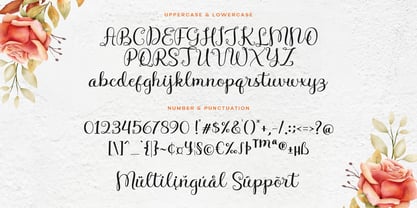 UPPERCASE & LOWERCASE
ABCDEFGHIJKLMNO
PQRSTUVWXYZ
abcdefghijklmnopqrstuvwxyz
NUMBER & PUNCTUATION
01234567890 !"#$%&'()*+,-/:;<=>?@
|\]^_`{|}~¢¤¥§©È
Multilingual Support